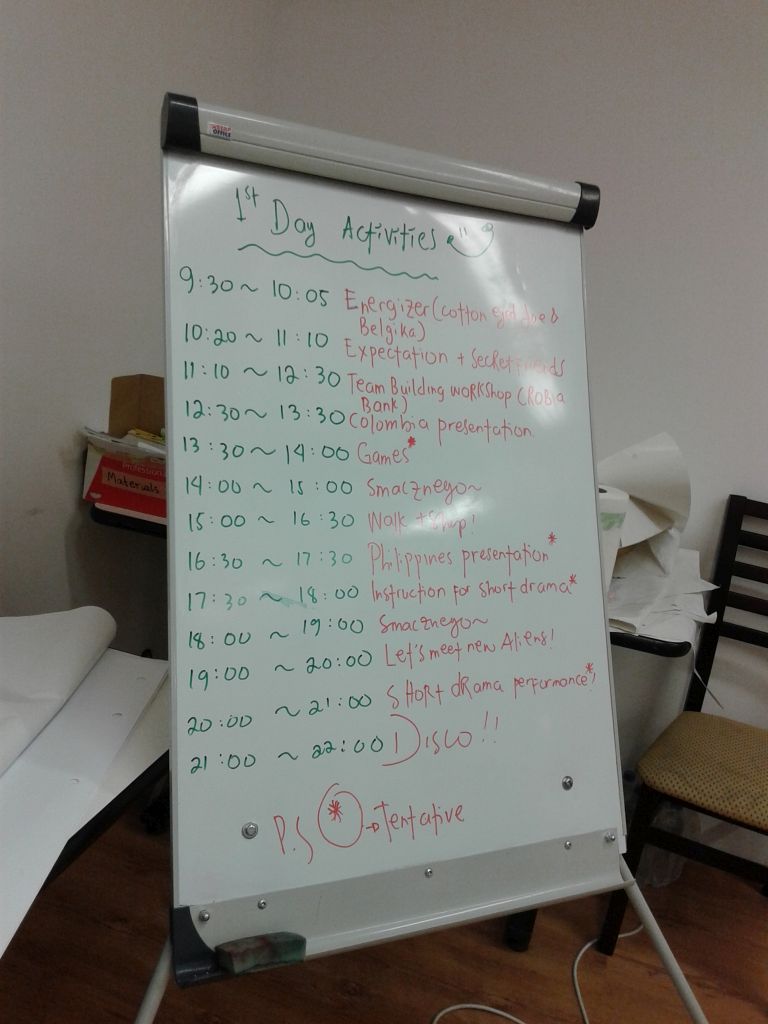 OFFICE
1st Day Activities
9:30 ~ 10:05 Energizer (cotton eyed Joe &
Belgika)
10:20 ~ 11:10 Expectation + Secret Friends
11:10 ~ 12:30 Team Building workshop (ROBIA
Bank)
12:30 ~ 13:30 Colombia presentation
13:30 ~ 14:00 Games*
14:00 ~ 15:00 Smacznego~
15:00 ~ 16:30 Walk + shop!
16:30 ~ 17:30 Philippines presentation*
17:30 ~ 18:00 Instruction for short drama*
18:00 ~ 19:00 Smacznego~
19:00 ~ 20:00 Let's meet new Aliens!
20:00 ~ 21:00 SHORt dRama performance*!
21:00 ~ 22:00 Disco!!
P.S * → Tentative
Professional
Materials